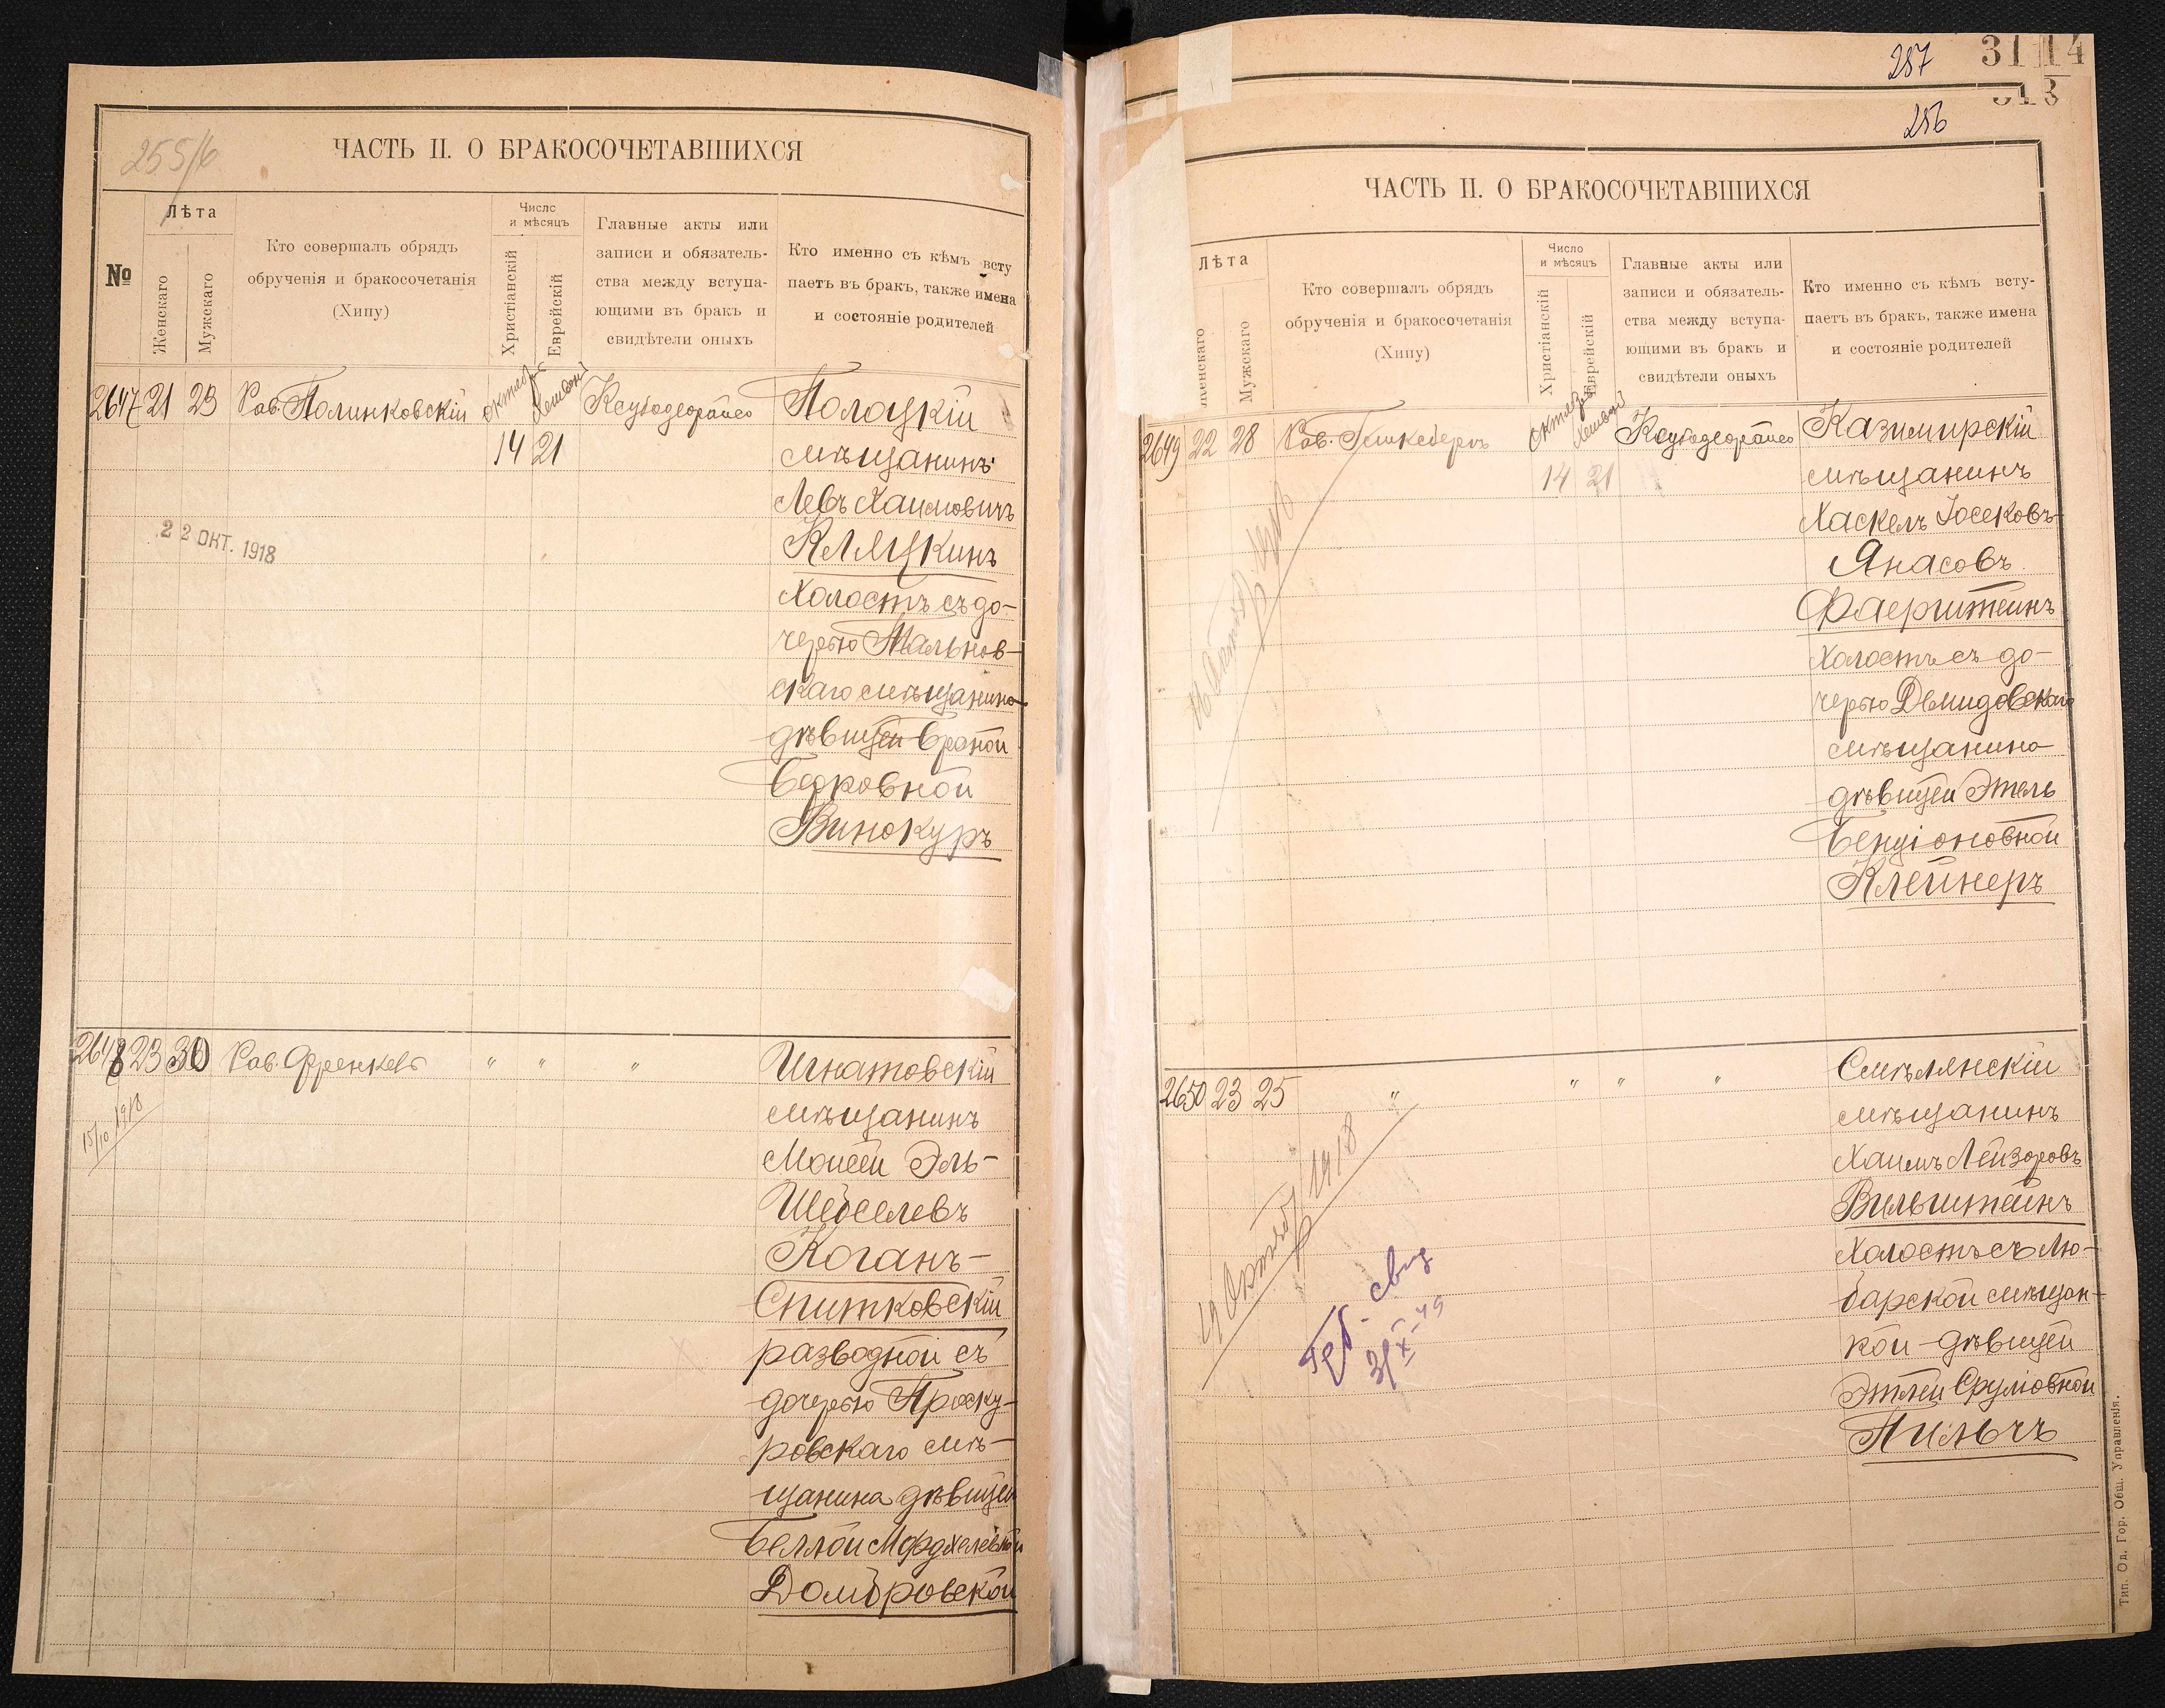 255/6
ЧАСТЬ II. О БРАКОСОЧЕТАВШИХСЯ
№
Лѣта
Женскаго
Мужскаго
Кто совершалъ обрядъ
обрученія и бракосочетанія
(Хипу)
Число
и мѣсяцъ
Христіанскій
Еврейскій
Главные акты или
записи и обязатель-
ства между вступа-
ющими въ бракъ и
свидѣтели оныхъ
Кто именно съ кѣмъ всту
паетъ въ бракъ, также имена
и состояніе родителей
2647 21 23 Рав. Полинковскій Октябрь Хешвон Полоцкій
14 21 мѣщанинъ
Левъ Хаимовичъ
Кляцкинъ
22 ОКТ. 1918
Холостъ съ до-
черью Мальнов-
скаго мѣщанина
дѣвицей
Берковной
Винокуръ
2648 23 30 Рав. Френкель " " " Игнатовскій
15/10 1918
мѣщанинъ
Моисей Эль-
Шебселевъ
Коганъ-
Спитковскій
разводной съ
дочерью Проску-
ровскаго мѣ-
щанина дѣвицей
Беллой Мордхелевной
Домбровской
287 3114
313
256
ЧАСТЬ II. О БРАКОСОЧЕТАВШИХСЯ
Лѣта
Женскаго
Мужскаго
Кто совершалъ обрядъ
обрученія и бракосочетанія
(Хипу)
Число
и мѣсяцъ
Христіанскій
Еврейскій
Главные акты или
записи и обязатель-
ства между вступа-
ющими въ бракъ и
свидѣтели оныхъ
Кто именно съ кѣмъ всту-
паетъ въ бракъ, также имена
и состояніе родителей
2649 22 28 Рав. Гинкеберъ Октябрь Хешвон Казимирскій
14 21 мѣщанинъ
Хаскель Іосековъ-
Янасовъ
Фаерштейнъ
Холостъ съ до-
черью Демидовскаго
мѣщанина
дѣвицей Этель
Бенціоновной
Клейнеръ
2650 23 25 " " " " Смѣлянскій
мѣщанинъ
Хаимъ Лейзоровъ
Вильштейнъ
Холостъ съ Лю-
барской мѣщан-
кой-дѣвицей
Этлей Сруліовной
Пильчъ
1918
свид
31 X-49
Тип. Од. Гор. Общ. Управленія.